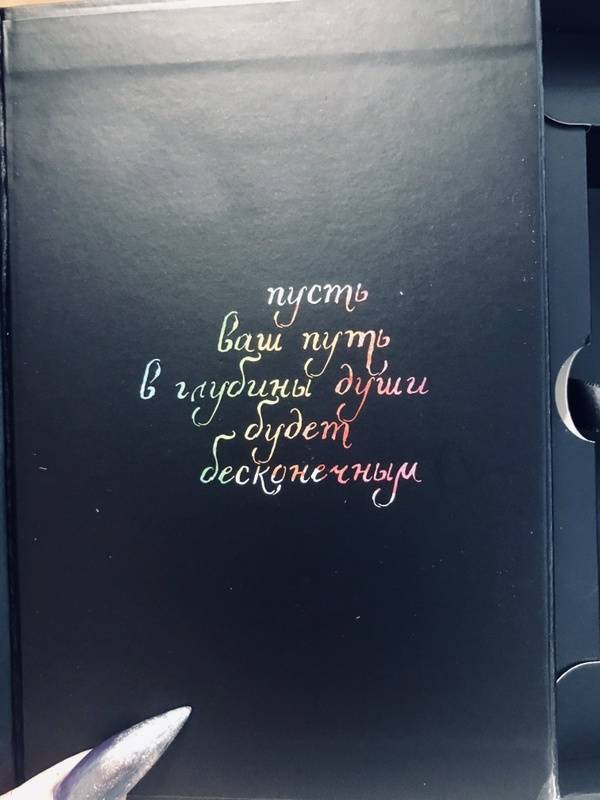 пусть
ваш путь
в глубины души
будет
бесконечным